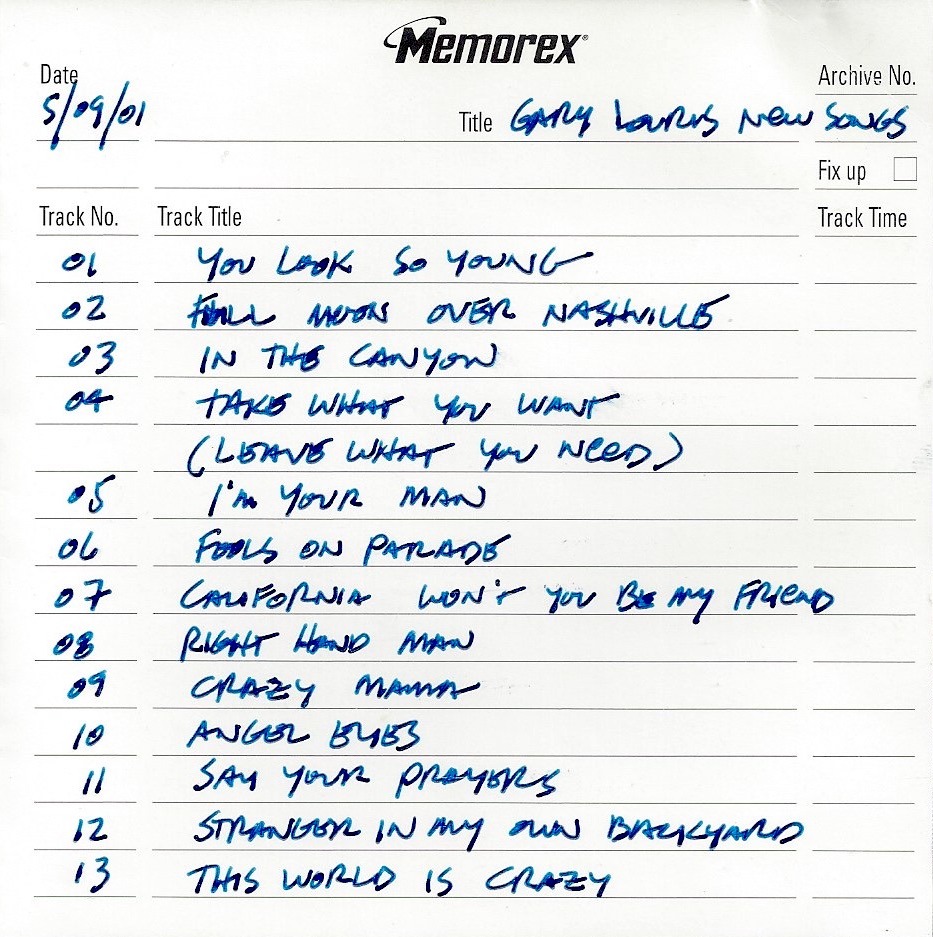 Memorex
Date
Archive No.
5/09/01
Title GARY LOURIS NEW SONGS
Fix up
Track No. Track Title Track Time
01 YOU LOOK SO YOUNG
02 FULL MOON OVER NASHVILLE
03 IN THE CANYON
04 TAKE WHAT YOU WANT
(LEAVE WHAT YOU NEED)
05 I'm YOUR MAN
06 FOOLS ON PARADE
07 CALIFORNIA WON'T YOU BE MY FRIEND
08 RIGHT HAND MAN
09 CRAZY MAMA
10 ANGEL EYES
11 SAY YOUR PRAYERS
12 STRANGER IN MY OWN BACKYARD
13 THIS WORLD IS CRAZY